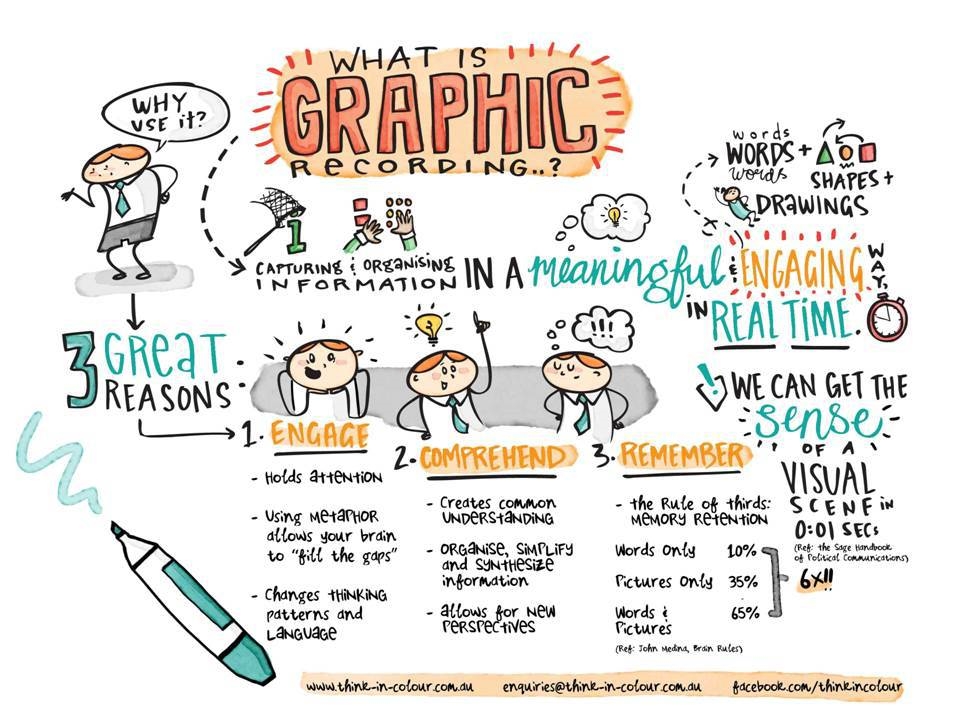 WHAT IS
GRAPHIC
RECORDING..?
WHY
USE IT?
1
CAPTURING & ORGANISING
INFORMATION
IN A meaningful & ENGAGING WAY,
IN REAL TIME.
words
WORDS +
words
SHAPES +
DRAWINGS
3 GREAT
REASONS:
!!!
1. ENGAGE
- Holds attention
- Using METAPHOR
allows your brain
to "fill the gaps"
- Changes thinking
patterns and
Language
2. COMPREHEND
- Creates common
UNDERSTANDING
- ORGANISE, SIMPLIFY
and SYNTHESIZE
information
- allows for NEW
PERSPECTIVES
3. REMEMBER
- the Rule of thirds:
MEMORY RETENTION
Words Only 10%
Pictures Only 35%
Words & 65%
Pictures
6x!!
(Ref: John Medina, Brain Rules)
! WE CAN GET THE
sense
OF A
VISUAL
SCENE in
0:01 SECs
(Ref: the Sage Handbook
of Political Communications)
www.think-in-colour.com.au enquiries@think-in-colour.com.au facebook.com/thinkincolour